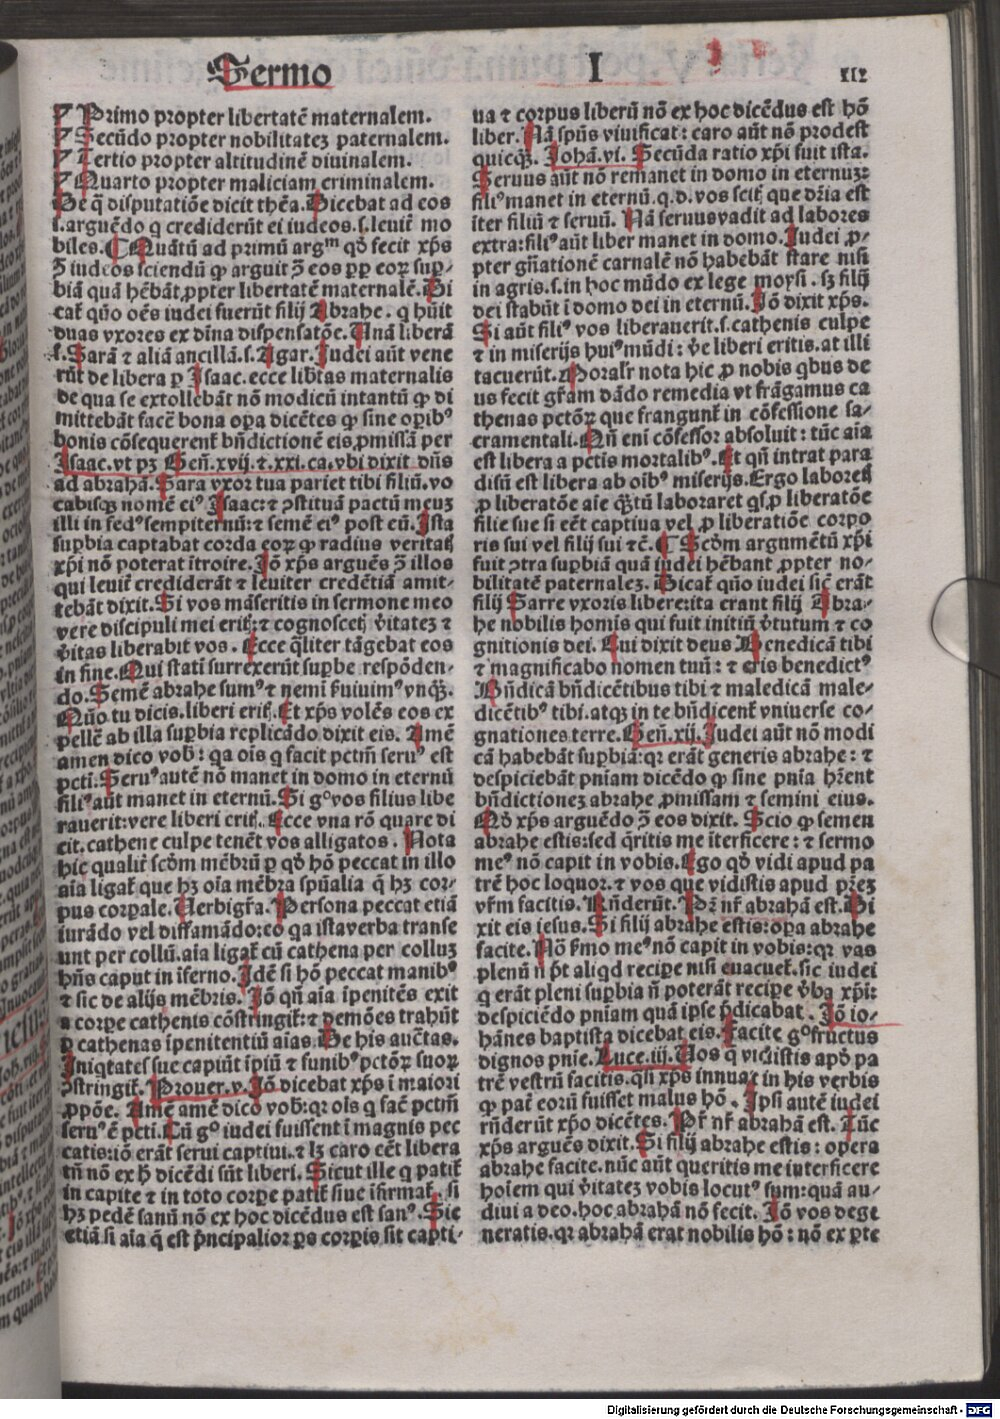 Sermo I xlx
¶ Primo propter libertatē maternalem.
¶ Secūdo propter nobilitatez paternalem.
¶ Tertio propter altitudinē diuinalem.
¶ Quarto propter maliciam criminalem.
De q̄ disputatiōe dicit thēa. Dicebat ad eos
.i. arguēdo q crediderūt ei iudeos .s. leuit mo
biles. ¶ Quātū ad primū argᵐ qd fecit xp̄s
ꝯ iudeos sciendū ꝙ arguit ꝯ eos ꝓp eoꝝ sup-
biā quā hēbāt ꝓpter libertatē maternalē. Di
cat quō oēs iudei fuerūt filij Abrahe. q hūit
duas vxores ex dīna dispensatōe. Unā liberā
s. Sarā ⁊ aliā ancillā .s. Agar. Iudei aūt vene
rūt de libera p Isaac. ecce libtas maternalis
de qua se extollebāt nō modicū intantū ꝙ di
mittebāt facē bona opa dicētes ꝙ sine opibꝰ
bonis cōsequerent bn̄dictionē eis ꝓmissā per
Isaac. vt pꝫ Gen̄. xvij. ⁊ .xxi. ca. vbi dixit dn̄s
ad abrahā. Sara vxor tua pariet tibi filiū. vo
cabisqꝫ nomē eiꝰ Isaac: ⁊ ꝯstituā pactū meuz
illi in fedꝰ sempiternū: ⁊ semē eiꝰ post eū. Ista
supbia captabat corda eoꝝ ꝙ radius veritatꝭ
xp̄i nō poterat ītroire. Iō xp̄s arguēs ꝯ illos
qui leuit crediderāt ⁊ leuiter credētiā amit-
tebāt dixit. Si vos māseritis in sermone meo
vere discipuli mei eritꝭ: ⁊ cognoscetꝭ v̄itatez ⁊
v̄itas liberabit vos. Ecce q̄liter tāgebat eos
in fine. Qui statī surrexerūt supbe respōden-
do. Semē abrahe sumꝰ ⁊ nemī ẜuiuimꝰ vnqꝫ.
Quō tu dicis. liberi eritꝭ. Et xp̄s volēs eos ex
pellē ab illa supbia replicādo dixit eis. Amē
amen dico vob: qa oīs q facit pctm̄ seruꝰ est
pcti. Seruꝰ autē nō manet in domo in eternū
filiꝰ aūt manet in eternū. Si gᵒ vos filius libe
rauerit: vere liberi eritꝭ. Ecce vna rō quare di
cit. cathene culpe tenēt vos alligatos. Nota
hic qualit scōm mēbrū p qd hō peccat in illo
aīa ligat que hꝫ oīa mēbra spūalia q̄ hꝫ cor-
pus corpale. Uerbigr̄a. Persona peccat etiā
iurādo vel diffamādo: eo qa ista verba transe
unt per collū. aīa ligat cū cathena per colluz
hn̄s caput in īferno. Idē si hō peccat manibꝰ
⁊ sic de alijs mēbris. Iō qn̄ aīa īpenitēs exit
a corpe cathenis cōstringit: ⁊ demōes trahūt
p cathenas īpenitentiū aīas. De his auc̄tas.
Iniqtates sue capiūt īpiū ⁊ funibꝰ pctoꝝ suoꝝ
ꝯstringit. Prouer. v. Iō dicebat xp̄s ī maiori
ꝓpōe. Amē amē dico vob: qr oīs q facꝭ pctm̄
seruꝰ ē pcti. Cū gᵒ iudei fuissent ī magnis pec
catis: iō erāt serui captiui. ⁊ lꝫ caro eēt libera
tn̄ nō ex h̄ dicēdi sūt liberi. Sicut ille q patit
in capite ⁊ in toto corpe patit siue īfirmat. si
hꝫ pedē sanū nō ex hoc dicēdus est sanꝰ. Sic
etiā si aīa q̄ est pn̄cipalior ps corpis sit capti-
ua ⁊ corpus liberū nō ex hoc dicēdus est hō
liber. Nā spūs viuificat: caro aūt nō prodest
quicqꝫ. Johā. vi. Secūda ratio xp̄i fuit ista.
Seruus aūt nō remanet in domo in eternuz:
filiꝰ manet in eternū. q. d. vos scitꝭ que dr̄ia est
iter filiū ⁊ seruū. Nā seruus vadit ad labores
extra: filiꝰ aūt liber manet in domo. Iudei ꝓ-
pter gn̄ationē carnalē nō habebāt stare nisi
in agris. s. in hoc mūdo ex lege moysi. sꝫ filij
dei stabūt ī domo dei in eternū. Iō dixit xp̄s.
Si aūt filiꝰ vos liberauerit. s. cathenis culpe
⁊ in miserijs huiꝰ mūdi: v̄e liberi eritis. at illi
tacuerūt. Moralr̄ nota hic ꝓ nobis qbus de
us fecit gr̄am dādo remedia vt frāgamus ca
thenas pctōꝝ que frangunt in cōfessione sa-
cramentali. Qn̄ eni cōfessor absoluit: tūc aīa
est libera a pctis mortalibꝰ. Et qn̄ intrat para
disū est libera ab oībꝰ miserijs. Ergo labores
ꝓ liberatōe aīe q̄tū laboraret qs ꝓ liberatōe
filie sue si eēt captiua vel ꝓ liberatiōe corpo
ris sui vel filij sui ⁊c̄. ¶ Scōm argumētū xp̄i
fuit ꝯtra supbiā quā iudei hēbant ꝓpter no-
bilitatē paternalez. Dicat quō iudei sic erāt
filij Sarre vxoris libere: ita erant filij Abra-
he nobilis homis qui fuit initiū v̄tutum ⁊ co
gnitionis dei. Cui dixit deus Benedicā tibi
⁊ magnificabo nomen tuū: ⁊ eris benedictꝰ
Bn̄dicā bn̄dicētibus tibi ⁊ maledicā male-
dicētibꝰ tibi. atqꝫ in te bn̄dicent vniuerse co-
gnationes terre. Gen̄. xij. Iudei aūt nō modi
cā habebāt supbiā: qr erāt generis abrahe: ⁊
despiciebāt pniam dicēdo ꝙ sine pnīa hr̄ent
bn̄dictionez abrahe ꝓmissam ⁊ semini eius.
Nō xp̄s arguēdo ꝯ eos dixit. Scio ꝙ semen
abrahe estis: sed q̄ritis me īterficere: ⁊ sermo
meꝰ nō capit in vobis. Ego qd vidi apud pa
trē hoc loquor. ⁊ vos que vidistis apud pr̄ez
vr̄m facitis. Rn̄derūt. Pr̄ nr̄ abrahā est. Di
xit eis iesus. Si filij abrahe estis: opa abrahe
facite. Nō ẜmo meꝰ nō capit in vobis: qr vas
plenū n̄ pt aliqd recipe nisi euacuet. sic iudei
q erāt pleni supbia n̄ poterāt recipe v̄ba xp̄i:
despiciēdo pniam quā ipse p̄dicabat. Iō io-
hānes baptista dicebat eis. Facite gᵒ fructus
dignos pnie. Luce. iij. Uos q vidistis apd pa
trē vestrū facitis. qsi xp̄s innuat in his verbis
ꝙ pater eorū fuisset malus hō. Ipsi autē iudei
rn̄derūt xp̄o dicētes. Pr̄ nr̄ abrahā est. Tūc
xp̄s arguēs dixit. Si filij abrahe estis: opera
abrahe facite. nūc aūt queritis me interficere
hoīem qui v̄itatez vobis locutꝰ sum: quā au-
diui a deo. hoc abrahā nō fecit. Iō vos dege
neratis. qr abrahā erat nobilis hō: nō ex pte
Digitalisierung gefördert durch die Deutsche Forschungsgemeinschaft - DFG